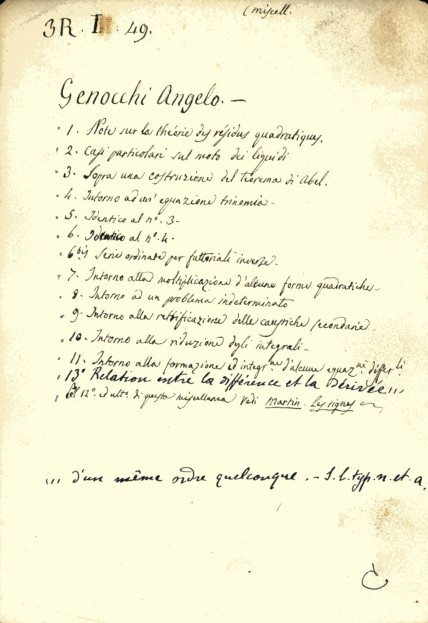 (miscell.
3R. I. 49.
Genocchi Angelo. —
1. Note sur la théorie des résidus quadratiques.
2. Casi particolari sul moto dei liquidi
3. Sopra una costruzione del teorema di Abel.
4. Intorno ad un' equazione trinomia.
5. Identico al nº. 3.
6. Identico al nº. 4.
6bis Serie ordinate per fattoriali inverse.
7. Intorno alla moltiplicazione d'alcune forme quadratiche.
8. Intorno ad un problema indeterminato
9. Intorno alla rettificazione delle caustiche secondarie.
10. Intorno alla riduzione degli integrali.
11. Intorno alla formazione ed integr.ne d'alcune equaz.ni differ.li
13º Relation entre la différence et la Dérivée,,,
12º. ed ult.º di questa miscellanea Vedi Martin Les signes
,,, d'un même ordre quelconque. - S. l. typ. n. et a.
C